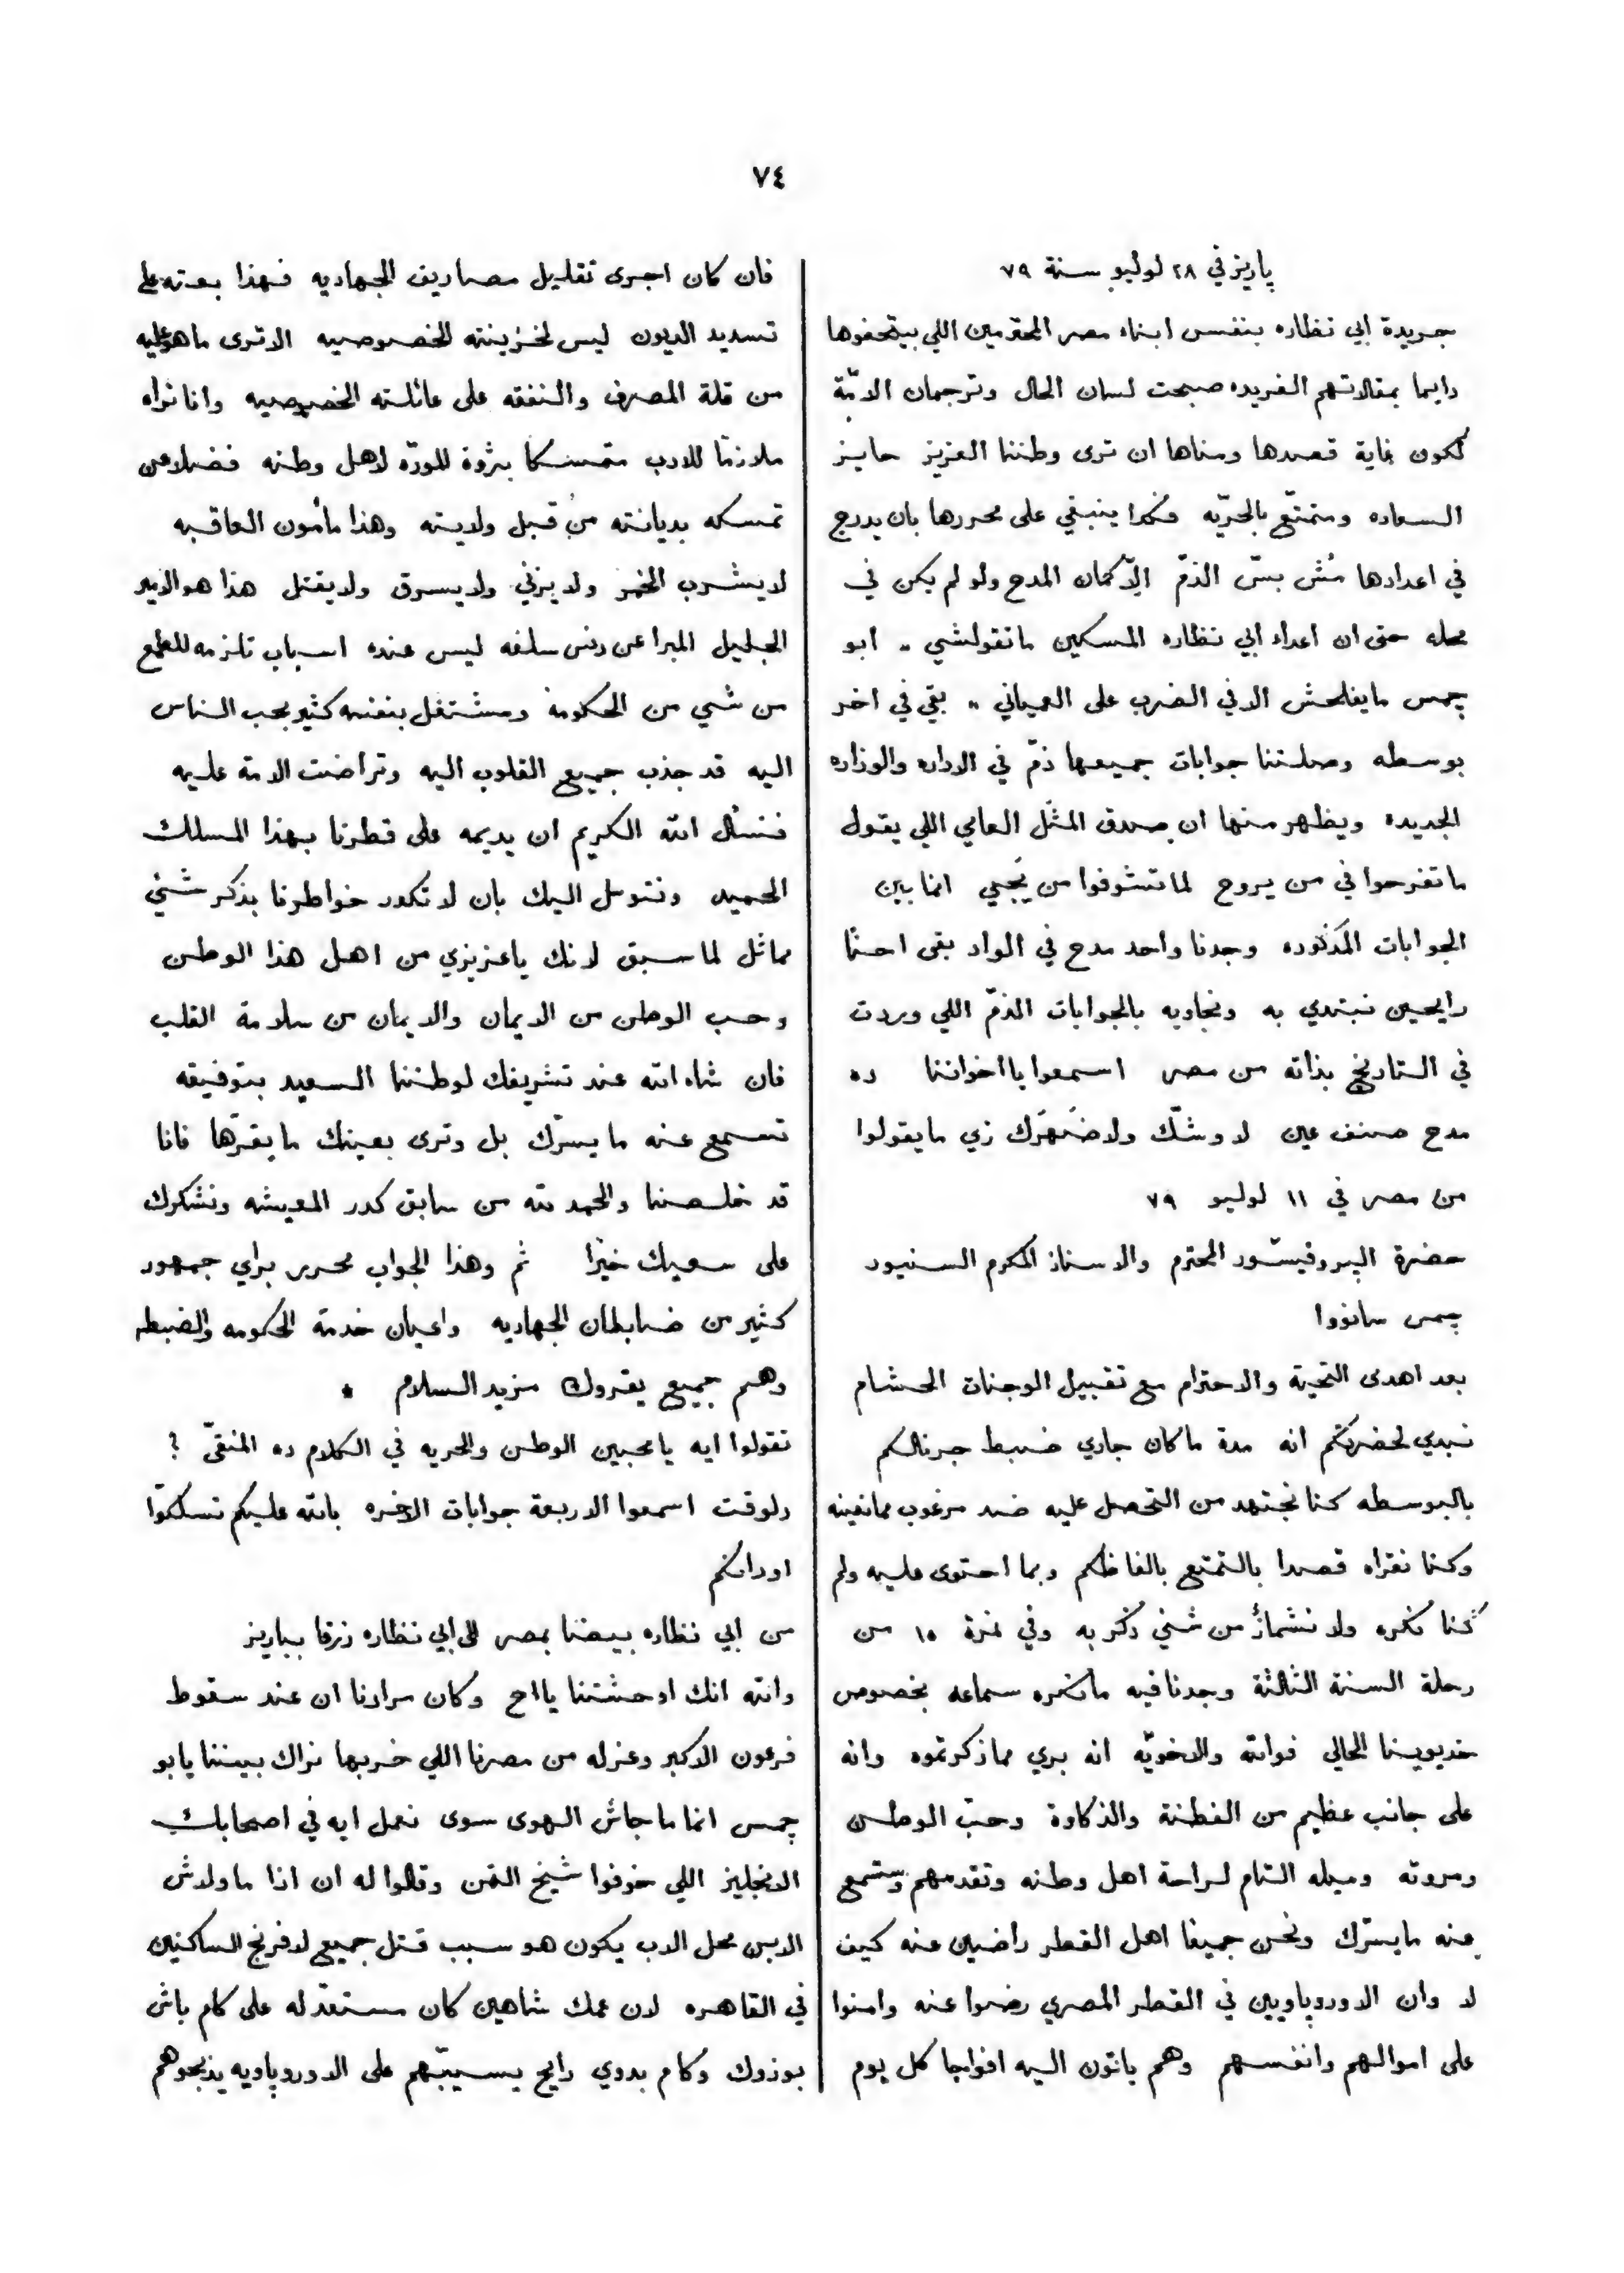 ٧٤
پاريز في ٢٨ لوليو سنة ٧٩
جريدة ابي نظاره بنفس ابناء مصر المحترمين اللي بيتحفوها
دايما بمقالاتهم الفريده صبحت لسان الحال وترجمان الامّة
لكون غاية قصدها ومناها ان ترى وطننا العزيز حايز
السعاده ومتمتّع بالحرّيه فكدا ينبغي على محررها بان يدرج
في اعدادها مُش بسّ الذمّ الّا كمان المدح ولو لم يكن في
محله حتى ان اعداء ابي نظاره المسكين ماتقولشي „ ابو
چمس مايفلحش الا في الضرب على العمياني „ بقى في اخر
بوسطه وصلتنا جوابات جميعها ذمّ في الاداره والوزاره
الجديده ويظهر منها ان صدق المثَل العامي اللي يقول
ماتفرحوا في من يروح لما تشوفوا من يَجي انما بين
الجوابات المذكوره وجدنا واحد مدح في الواد بقى احنا
رايحين نبتدي به ونجاوبه بالجوابات الذمّ اللي وردت
في التاريخ بذاته من مصر اسمعوا يا اخواننا ده
مدح صنف عين لا وشّك ولا ضَهرَك زي ما يقولوا
من مصر في ١١ لوليو ٧٩
حضرة البروفيسّور المحترم والاستاذ المكرم السنيور
چمس سانووا
بعد اهدى التحية والاحترام مع تقبيل الوجنات الحشام
نبدي لحضرتكم انه مدة ماكان جاري ضبط جرنالكم
بالبوسطه كنا نجتهد من التحصل عليه ضد مرغوب ممانعينه
وكنا نقراه قصدا بالتمتع بالفاظكم وبما احتوى عليه ولم
كنا نكره ولا نشمأزّ من شئ ذكر به وفي نمرة ١٥ من
رحلة السنة الثالثة وجدنا فيه مانكره سماعه بخصوص
خديوينا الحالي فوالله والاخويّه انه بري مما ذكرتموه وانه
على جانب عظيم من الفطنة والذكاوة وحبّ الوطن
ومروته وميله التام لراحة اهل وطنه وتقدمهم وستسمع
عنه مايسرّك ونحن جميعا اهل القطر راضين عنه كيف
لا وان الاوروپاويين في القطر المصري رضوا عنه وامنوا
على اموالهم وانفسهم وهم ياتون اليه افواجا كل يوم
فان كان اجرى تقليل مصاريف الجهاديه فهذا بعته على
تسديد الديون ليس لخزينته الخصوصيه الا ترى ماهو عليه
من قلة المصرف والنفقه على عائلته الخصوصيه وانا نراه
ملازمًا للادب متمسكا بثروة للودّه لاهل وطنه فضلا عن
تمسكه بديانته من قبل ولايته وهذا مأمون العاقبه
لايشرب الخمر ولا يزني ولا يسرق ولا يقتل هذا هو الامير
الجليل المبرا عن دنس سلفه ليس عنده اسباب تلزمه للطمع
من شي من الحكومة ومشتغل بنفسه كثير بحب الناس
اليه قد جذب جميع القلوب اليه وتراضت الامة عليه
فنسأل الله الكريم ان يديمه على قطرنا بهذا المسلك
الحميد ونتوسل اليك بان لا تكدر خواطرنا بذكر شئ
مماثل لما سبق لانك ياعزيزي من اهل هذا الوطن
وحب الوطن من الايمان والايمان من سلامة القلب
فان شاء الله عند تشريفك لوطننا السعيد بتوفيقه
تسمع عنه ما يسرّك بل وترى بعينك ما يقرّها فانا
قد خلصنا والحمد لله من سابق كدر المعيشه ونشكرك
على سعيك خيرًا ثم وهذا الجواب محرر براي جمهور
كثير من ضابطان الجهاديه واعيان خدمة الحكومه والضبطه
وهم جميع يقروك مزيد السلام *
تقولوا ايه يا محبين الوطن والحريه في الكلام ده المنقىّ ؟
دلوقت اسمعوا الاربعة جوابات الاخره بالله عليكم تسلكوّا
اودانكم
من ابي نظاره بيضا بمصر الى ابي نظاره زرقا بباريز
والله انك اوحشتنا يا اح وكان مرادنا ان عند سقوط
فرعون الاكبر وعزله من مصرنا اللي خربها نراك بيننا يابو
چمس انما ما جاش الهوى سوى نعمل ايه في اصحابك
الانجليز اللي خوفوا شيخ التمن وقالوا له ان اذا ما ولاش
الابن محل الاب يكون هو سبب قتل جميع لافرنج الساكنين
في القاهره لان عمك شاهين كان مستعدّ له على كام باش
بوزوك وكام بدوي رايح يسيبّهم على الاوروپاويه يذبحوهم